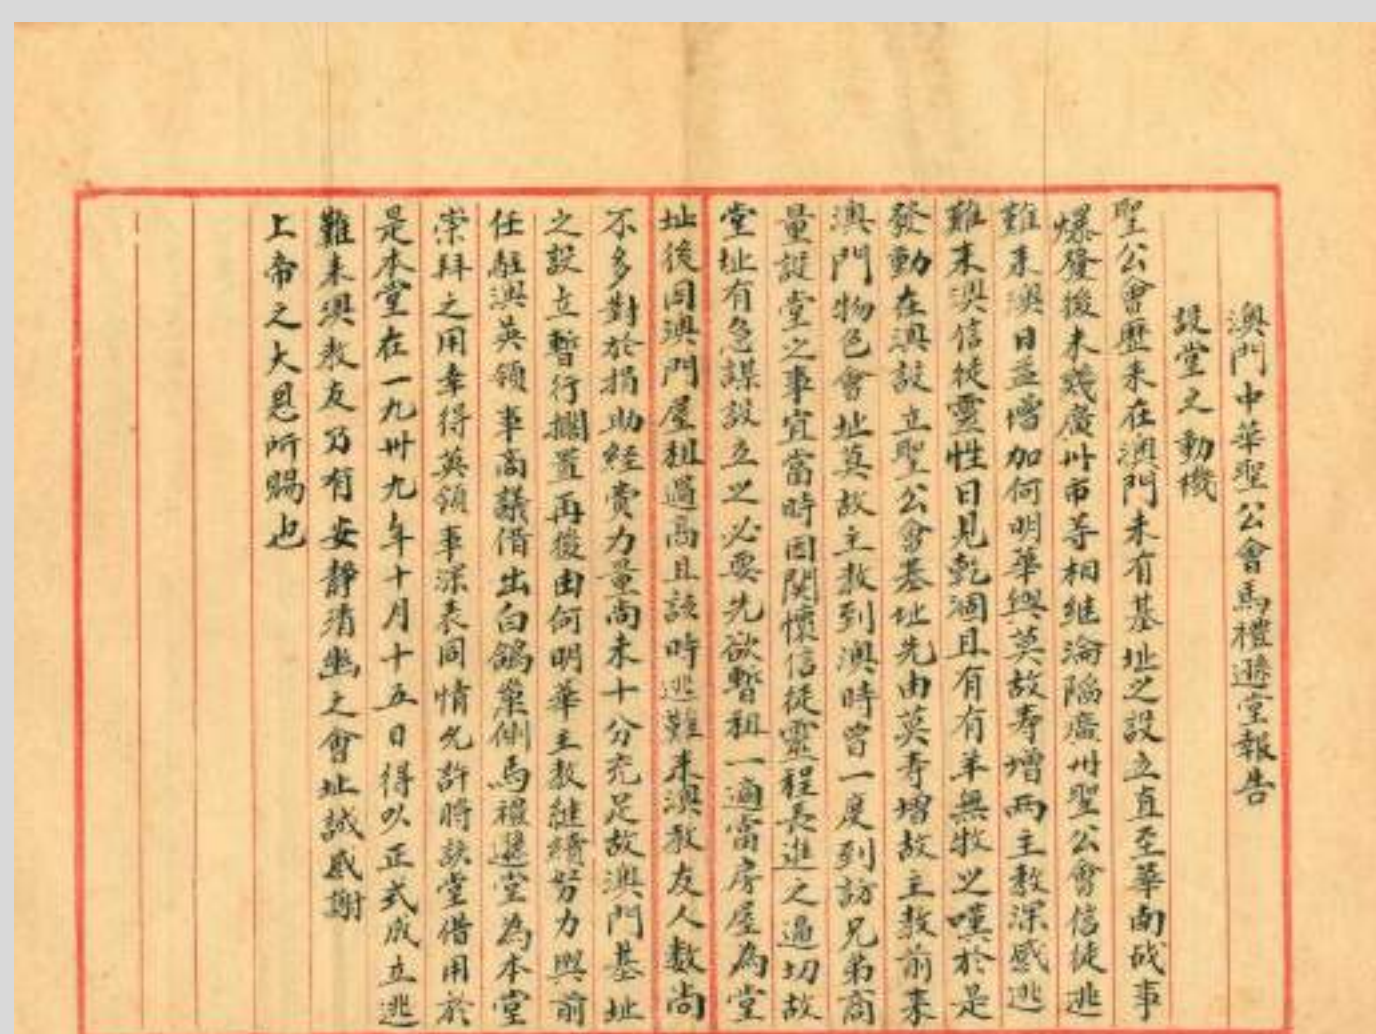 澳門中華聖公會馬禮遜堂報告
設堂之動機
聖公會歷來在澳門未有基址之設立直至華南战事
爆發後未幾廣州市等相继淪陷廣州聖公會信徒逃
難來澳日益增加何明華與莫故寿增兩主教深感逃
難來澳信徒靈性日見乾涸且有有羊無牧之嘆於是
發動在澳設立聖公會基址先由莫寿增故主教前來
澳門物色會址莫故主教到澳時曾一度到訪兄弟商
量設堂之事宜當時因関懷信徒靈程長進之逼切故
堂址有急謀設立之必要先欲暫租一適當房屋為堂
址後因澳門屋租過高且該時逃難來澳教友人數尚
不多對於捐助經費力量尚未十分充足故澳門基址
之設立暫行擱置再後由何明華主教继續努力與前
任駐澳英領事商議借出白鴿巢側馬禮遜堂為本堂
崇拜之用幸得英領事深表同情允許時該堂借用於
是本堂在一九卅九年十月十五日得以正式成立逃
難來澳教友乃有安靜清幽之會址誠感謝
上帝之大恩所賜也